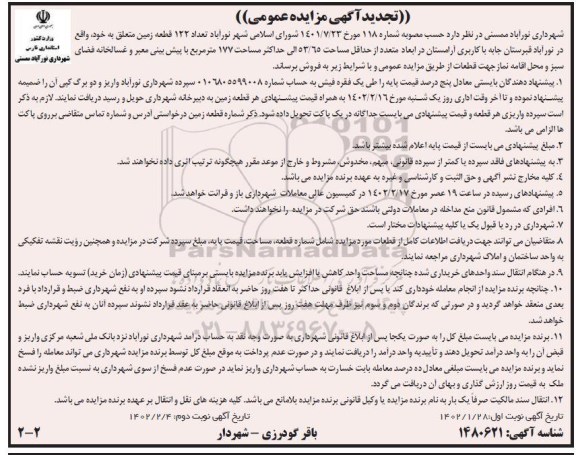 ((تجدیدآگهی مزایده عمومی))
وزارت کشور
استانداری فارس
شهرداری نورآباد ممسنی
شهرداری نورآباد ممسنی در نظر دارد حسب مصوبه شماره ۱۱۸ مورخ ۱۴۰۱/۷/۲۳ شورای اسلامی شهر نورآباد تعداد ۱۲۲ قطعه زمین متعلق به خود، واقع
در نورآباد قبرستان جابه با کاربری آرامستان در ابعاد متعدد از حداقل مساحت ۵۳/۶۵ الی حداکثر مساحت ۱۷۷ مترمربع با پیش بینی معبر و غسالخانه فضای
سبز و محل اقامه نماز جهت قطعات از طریق مزایده عمومی و با شرایط زیر به فروش برساند.
۱. پیشنهاد دهندگان بایستی معادل پنج درصد قیمت پایه را طی یک فقره فیش به حساب شماره ۰۱۰۶۸۰۵۵۹۹۰۰۸ سپرده شهرداری نورآباد واریز و دو برگ کپی آن را ضمیمه
پیشنهاد نموده و تا آخر وقت اداری روز یک شنبه مورخ ۱۴۰۲/۲/۱۶ به همراه قیمت پیشنهادی هر قطعه زمین به دبیرخانه شهرداری حویل و رسید دریافت نمایند. لازم به ذکر
است سپرده واریزی هر قطعه و قیمت پیشنهادی می بایست جداگانه در یک پاکت تحویل داده شود. ذکر شماره قطعه زمین درخواستی آدرس و شماره تماس متقاضی برروی پاکت
ها الزامی می باشد.
۲. مبلغ پیشنهادی می بایست از قیمت پایه اعلام شده بیشتر باشد.
۳. به پیشنهادهای فاقد سپرده یا کمتر از سپرده قانونی، مبهم، مخدوش، مشروط و خارج از موعد مقرر هیچگونه ترتیب اثری داده نخواهند شد.
۴. کلیه مخارج نشر آگهی و حق الثبت و کارشناسی و غیره به عهده برنده مزایده می باشد.
۵. پیشنهادهای رسیده در ساعت ۱۹ عصر مورخ ۱۴۰۲/۲/۱۷ در کمیسیون عالی معاملات شهرداری باز و قرائت خواهد شد.
۶. افرادی که مشمول قانون منع مداخله در معاملات دولتی باشند حق شرکت در مزایده را نخواهند داشت.
۷. شهرداری در رد یا قبول یک یا کلیه پیشنهادات مختار است.
۸. متقاضیان می توانند جهت دریافت اطلاعات کامل از قطعات مورد مزایده شامل شماره قطعه، مساحت، قیمت پایه، مبلغ سپرده شرکت در مزایده و همچنین رؤیت نقشه تفکیکی
به واحد ساختمان و املاک شهرداری مراجعه نمایند.
۹. در هنگام انتقال سند واحدهای خریداری شده چنانچه مساحت واحد کاهش یا افزایش یابد برنده مزایده بایستی برمبنای قیمت پیشنهادی (زمان خرید) تسویه حساب نمایند.
۱۰. چنانچه برنده مزایده از انجام معامله خودداری کند یا پس از ابلاغ قانونی حداکثر تا هفت روز حاضر به انعقاد قرارداد نشود سپرده او به نفع شهرداری ضبط و قرارداد با فرد
بعدی منعقد خواهد گردید و در صورتی که برندگان دوم و سوم نیز ظرف مهلت هفت روز پس از ابلاغ قانونی حاضر به عقد قرارداد نشوند سپرده آنان به نفع شهرداری ضبط
خواهد شد.
۱۱. برنده مزایده می بایست مبلغ کل را به صورت یکجا پس از ابلاغ قانونی شهرداری به صورت وجه نقد به حساب درآمد شهرداری نورآباد نزد بانک ملی شعبه مرکزی واریز و
قبض آن را به واحد درآمد تحویل دهند و تأییدیه واحد درآمد را دریافت نمایند و در صورت عدم پرداخت به موقع مبلغ کل توسط برنده مزایده شهرداری می تواند معامله را فسخ
نماید و برنده مزایده می بایست مبلغی معادل ده درصد معامله بابت خسارت به حساب شهرداری واریز نماید در صورت عدم فسخ از سوی شهرداری به نسبت مبلغ واریز نشده
ملک به قیمت روز ارزش گذاری و بهای آن دریافت می گردد.
۱۲. انتقال سند مالکیت صرفاً یک بار به نام برنده مزایده یا وکیل قانونی برنده مزایده بلامانع می باشد. کلیه هزینه های نقل و انتقال بر عهده برنده مزایده می باشد.
تاریخ آگهی نوبت اول: ۱۴۰۲/۱/۲۸ تاریخ آگهی نوبت دوم: ۱۴۰۲/۲/۴
شناسه آگهی: ۱۴۸۰۶۲۱ باقر گودرزی - شهردار ۲-۲
ParsNamadData
۰۲۱-۸۸۳۴۹۶۷۰-۵